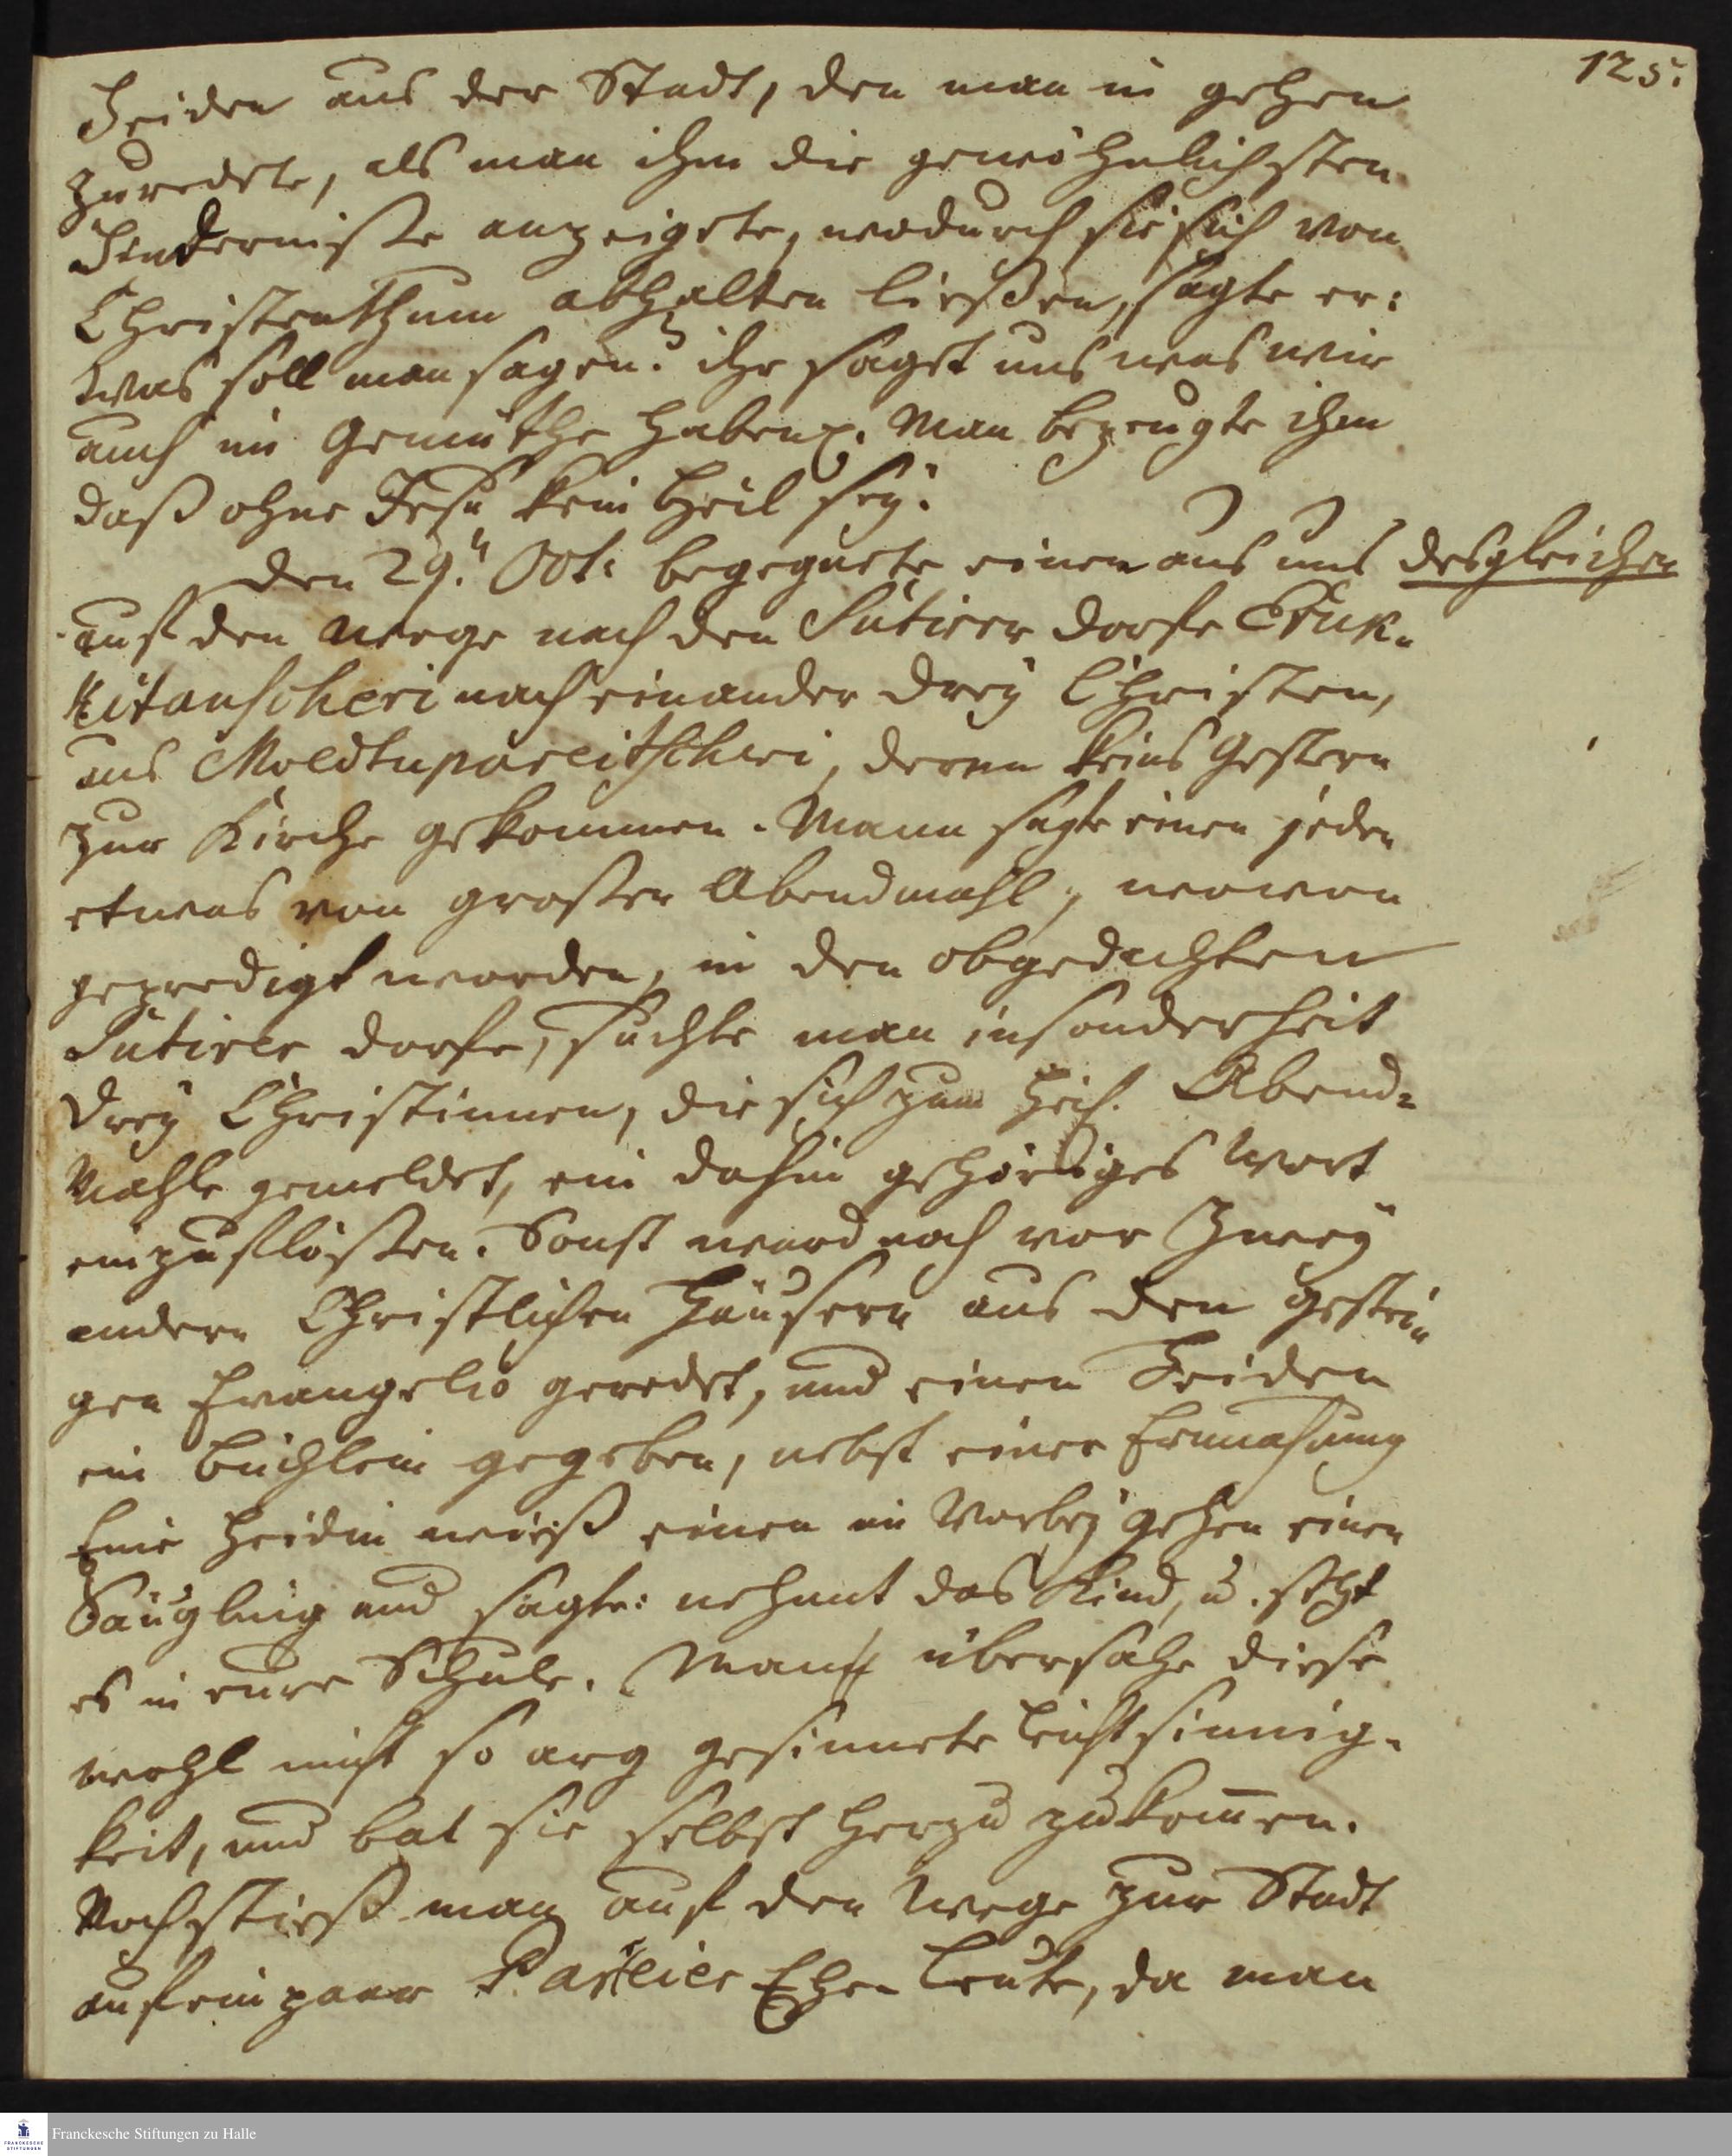 125.
Heiden aus der Stadt, den man in gehen
zuredete, als man ihm die gewöhnlichsten
Hinderniße anzeigete, wodurch sie sich von
Christenthum abhalten ließen, sagte er:
was soll man sagen? ihr saget uns was wir
auch im Gemüthe haben p. Man bezeugte ihm
daß ohne Jesu kein Heil sey.
den 29.n Oct: begegnete einen aus uns desgleichen
auf den Weege nach den Sutirer dorfe Eruk-
kitanscheri nach einander drey Christen,
aus Moedtupareitscheri, deren keins Gestern
zur Kirche gekommen. Mann sagte einen jeden
etwas von großen Abendmahl, wovon
geprediget worden, in den obgedachten
Sutirer dorfe, suchte man insonderheit
drey Christinnen, die sich zum heil. Abend-
Mahle gemeldet, ein dahin gehöriges Wort
einzuflößen. Sonst ward noch vor Zweey
andern Christlichen Häusern aus den gestri-
gen Evangelio geredet, und einen Heiden
ein Büchlein gegeben, nebst einer Ermahnung
Eine Heidin wieß einen im Vorbey gehen einen
Säugling und sagte: nehmt das Kind, u. setzt
es in eure Schule. Man übersahe diese
wohl nicht so arg gesinnete Leichtsinnig-
keit, und bat sie selbst herzu zu kommen.
Noch stieß man auf den Wege zur Stadt
auf ein paar Pareier Ehe-Leute, da man
Franckesche Stiftungen zu Halle
FRANCKESCHE
STIFTUNGEN